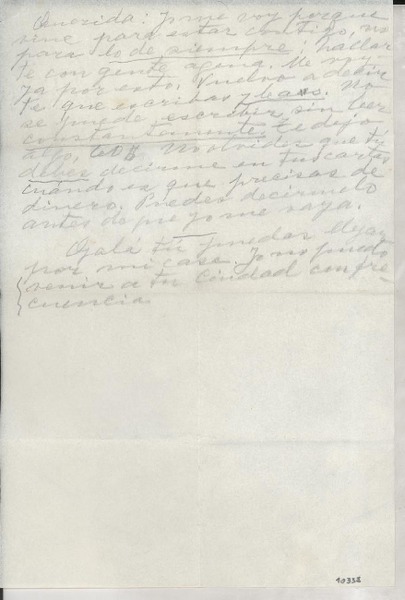 Querida: Yo me voy porque
vine para estar contigo, no
para lo de siempre: hallar
te con gente ajena. Me voy
ya por esto. Vuelvo a decir
te que escribas y leas. No
se puede escribir sin leer
constantemente. Te dejo
algo, No olvides que tú
debes decirme en tus cartas
cuándo es que precisas de
dinero. Puedes decírmelo
antes de que yo me vaya.
Ojalá tú puedas llegar
por mi casa. Yo no puedo
venir a tu ciudad con fre-
cuencia
10338